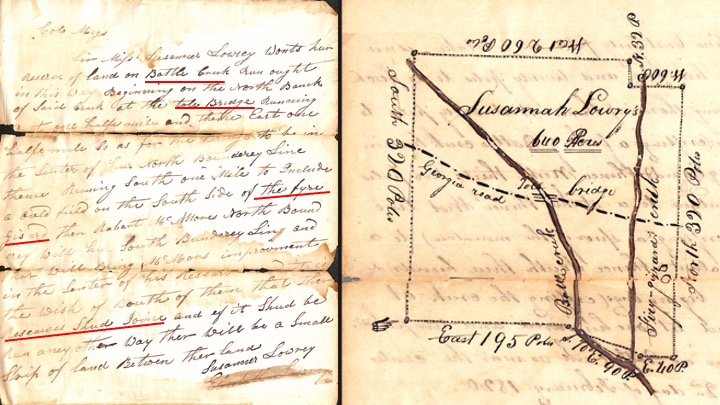 Colo Mays
Sir Miss Susanner Lowrey Wonts her
reserve of land on Battle Creuk Run ought
in this Way Beginning on the North Banck
of Said Cruk at the tole Bridge Running
one halfe mile and thence East one
halfe mile So as for the to be in
the Senter of hur North Bounderey Line
thence Running South one Mile to Include
a old field on the South Side of the fyre
Gisard then Robart Mc Mores North Bound
rey Will be South Bunderey Line and
Will Bring Mc Mors improvments
in the Senter of his Reserve
the Wish of Bouth of them that ther
reserves Shud Joine and if it Shud be
Run aney other Way ther Will be a Small
Strip of land Between ther land
Susanner Lowrey
West 260 Polis
N. 32 P
W. 60 P
Susannah Lowry's
640 Acres
South 320 Polis
Georgia road
Toll bridge
Battle cruk
Fire-gizards cruk
North 390 Polis
East 195 Polis
E. 90 P.
E. 40 P